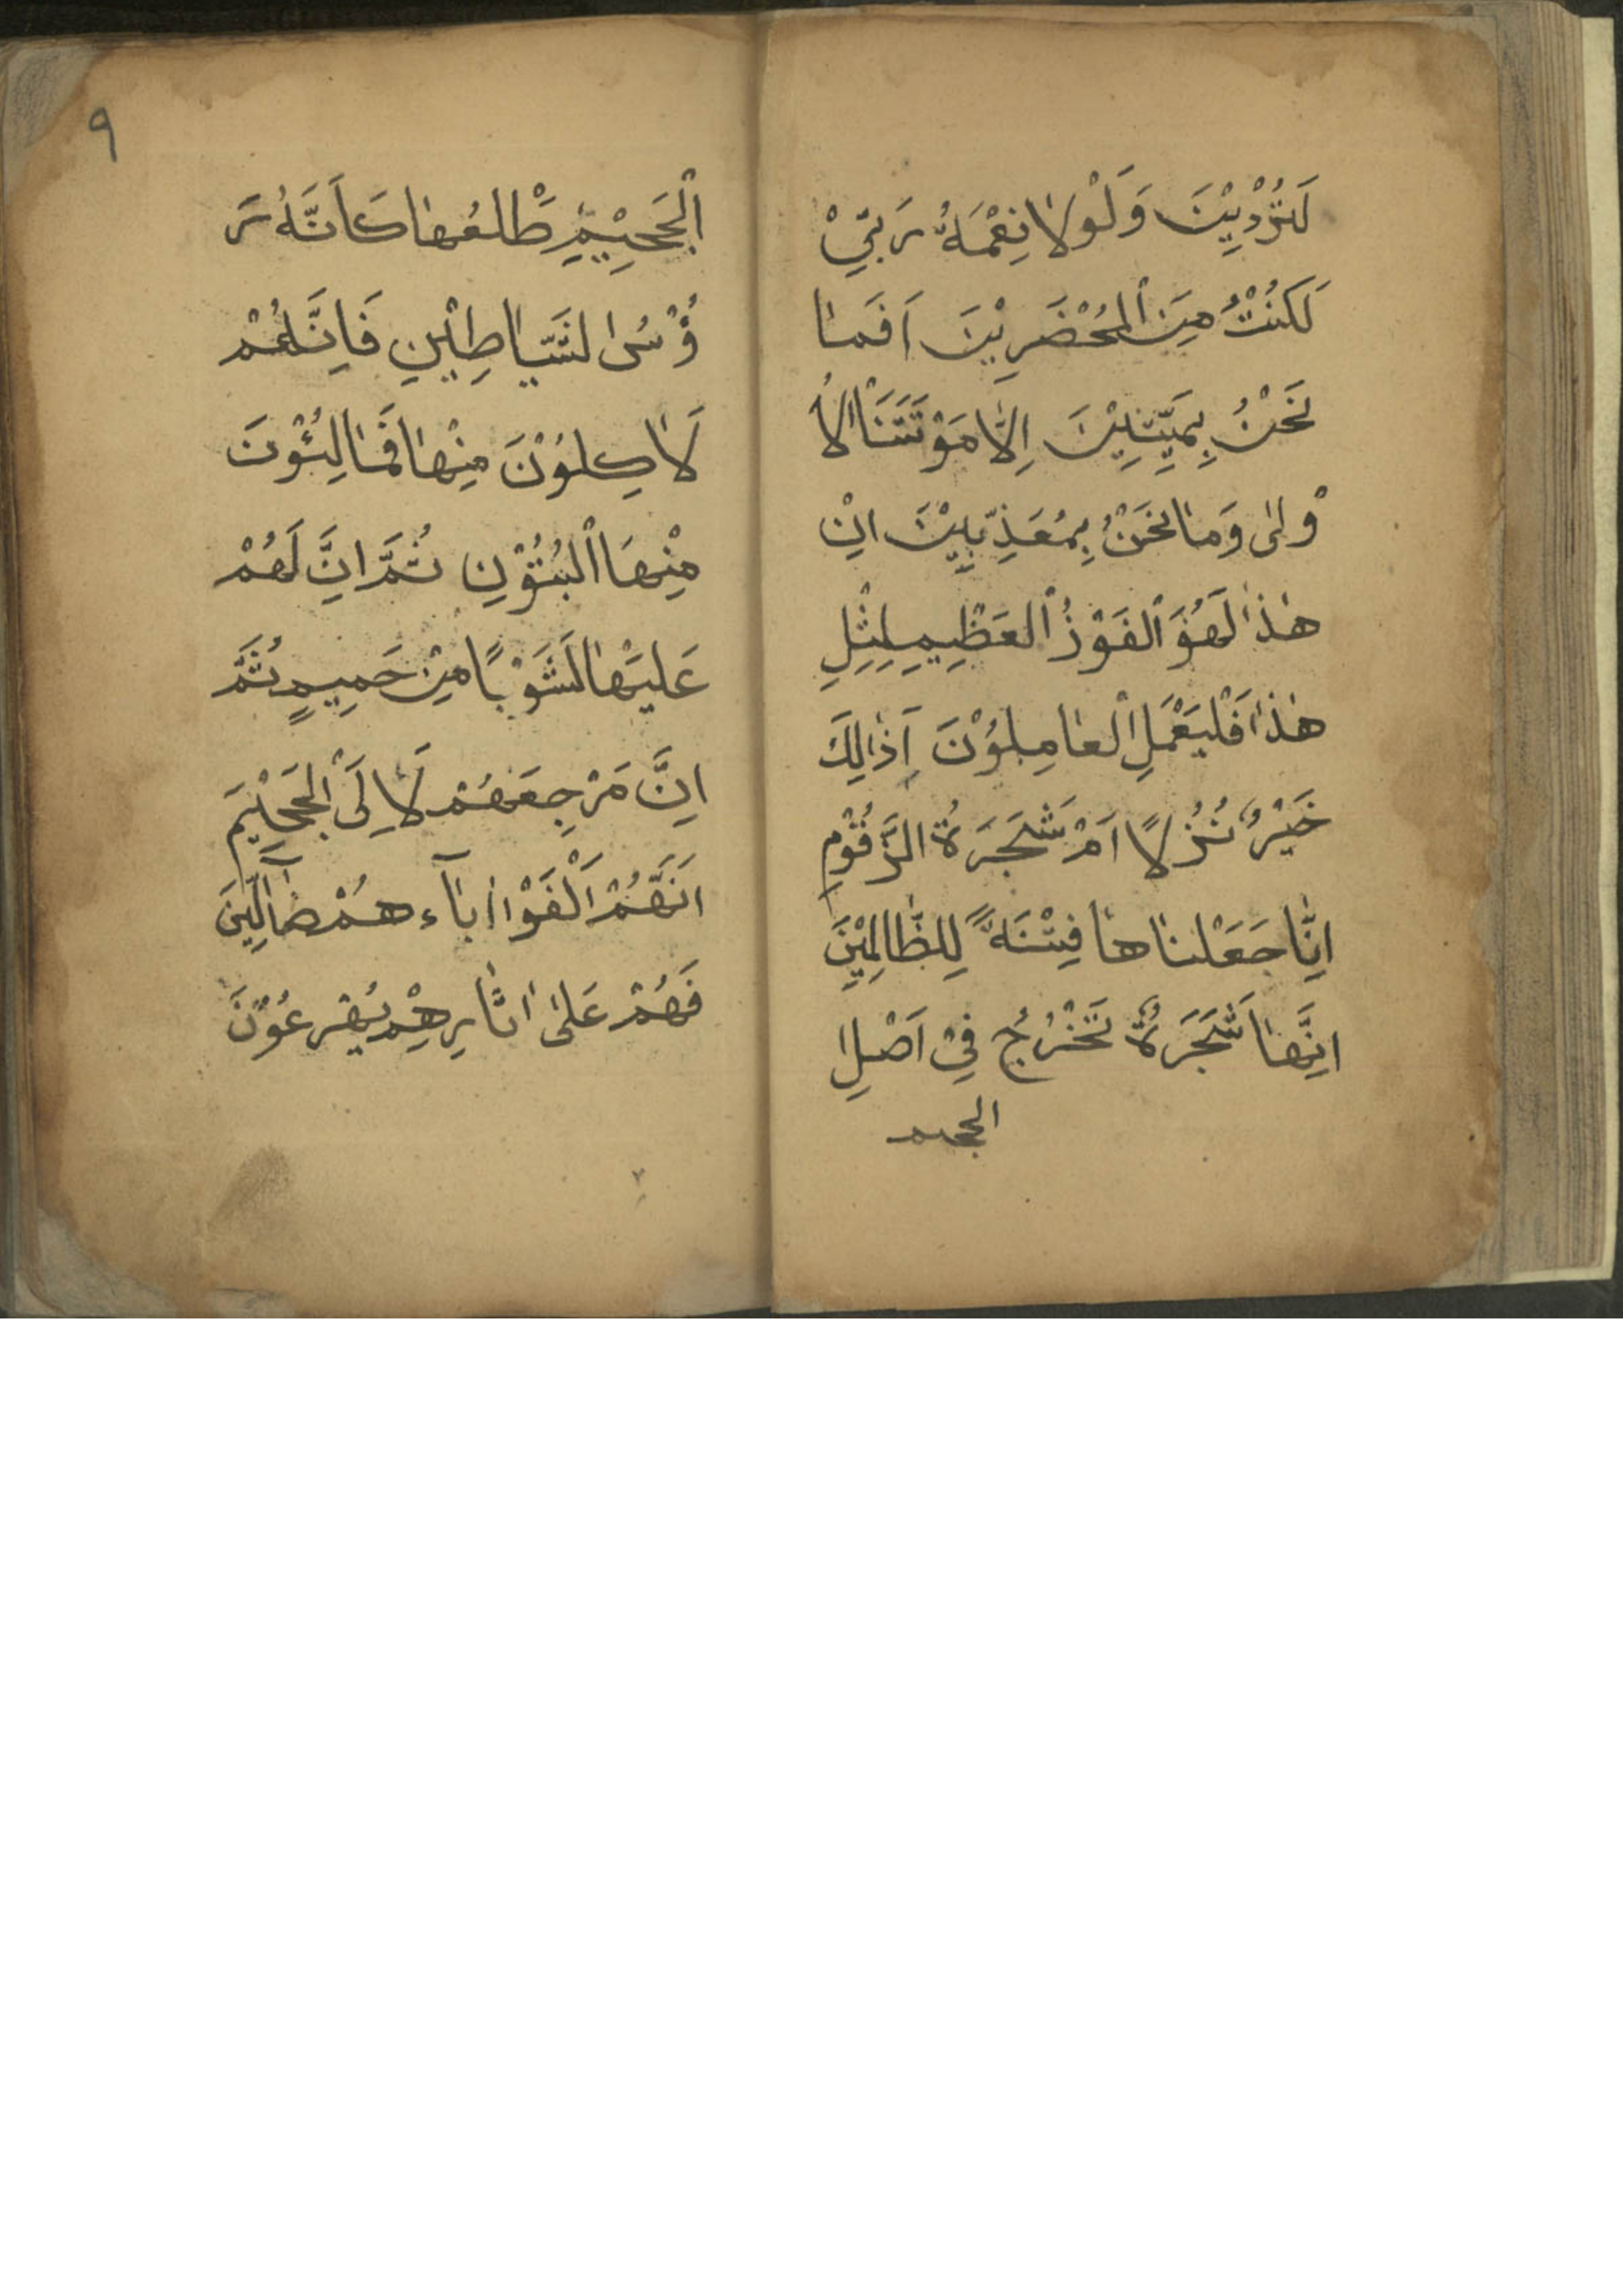 لَتُرْدِيْنَ وَلَوْلَا نِعْمَةُ رَبِّيْ
لَكُنْتُ مِنَ الْمُحْضَرِيْنَ اَفَمَا
نَحْنُ بِمَيِّتِيْنَ اِلَّا مَوْتَتَنَا الْاُ
وْلٰى وَمَا نَحْنُ بِمُعَذَّبِيْنَ اِنَّ
هٰذَا لَهُوَ الْفَوْذُ الْعَظِيمِ لِمِثْلِ
هٰذَا فَلْيَعْمَلِ الْعَامِلُوْنَ اَذَالِكَ
خَيْرٌ نُزُلًا اَمْ شَجَرَةُ الزَّقُّوْمِ
اِنَّا جَعَلْنَاهَا فِتْنَةً لِلظَّالِمِيْنَ
اِنَّهَا شَجَرَةٌ تَخْرُجُ فِيْ اَصْلِ
الجحيم
٩
الْجَحِيْمِ طَلْعُهَا كَاَنَّهُ رَ
ؤُسُ الشَّيَاطِيْنِ فَاِنَّهُمْ
لَاٰكِلُوْنَ مِنْهَا فَمَالِئُوْنَ
مِنْهَا الْبُطُوْنِ ثُمَّ اِنَّ لَهُمْ
عَلَيْهَا لَشَوْبًا مِنْ حَمِيمٍ ثُمَّ
اِنَّ مَرْجِعَهُمْ لَاِلَى الْجَحِيْمِ
اِنَّهُمْ اَلْفَوْا اٰبَآءَ هُمْ ضَآلِّيْنَ
فَهُمْ عَلٰى اٰثَارِهِمْ يُهْرَعُوْنَ